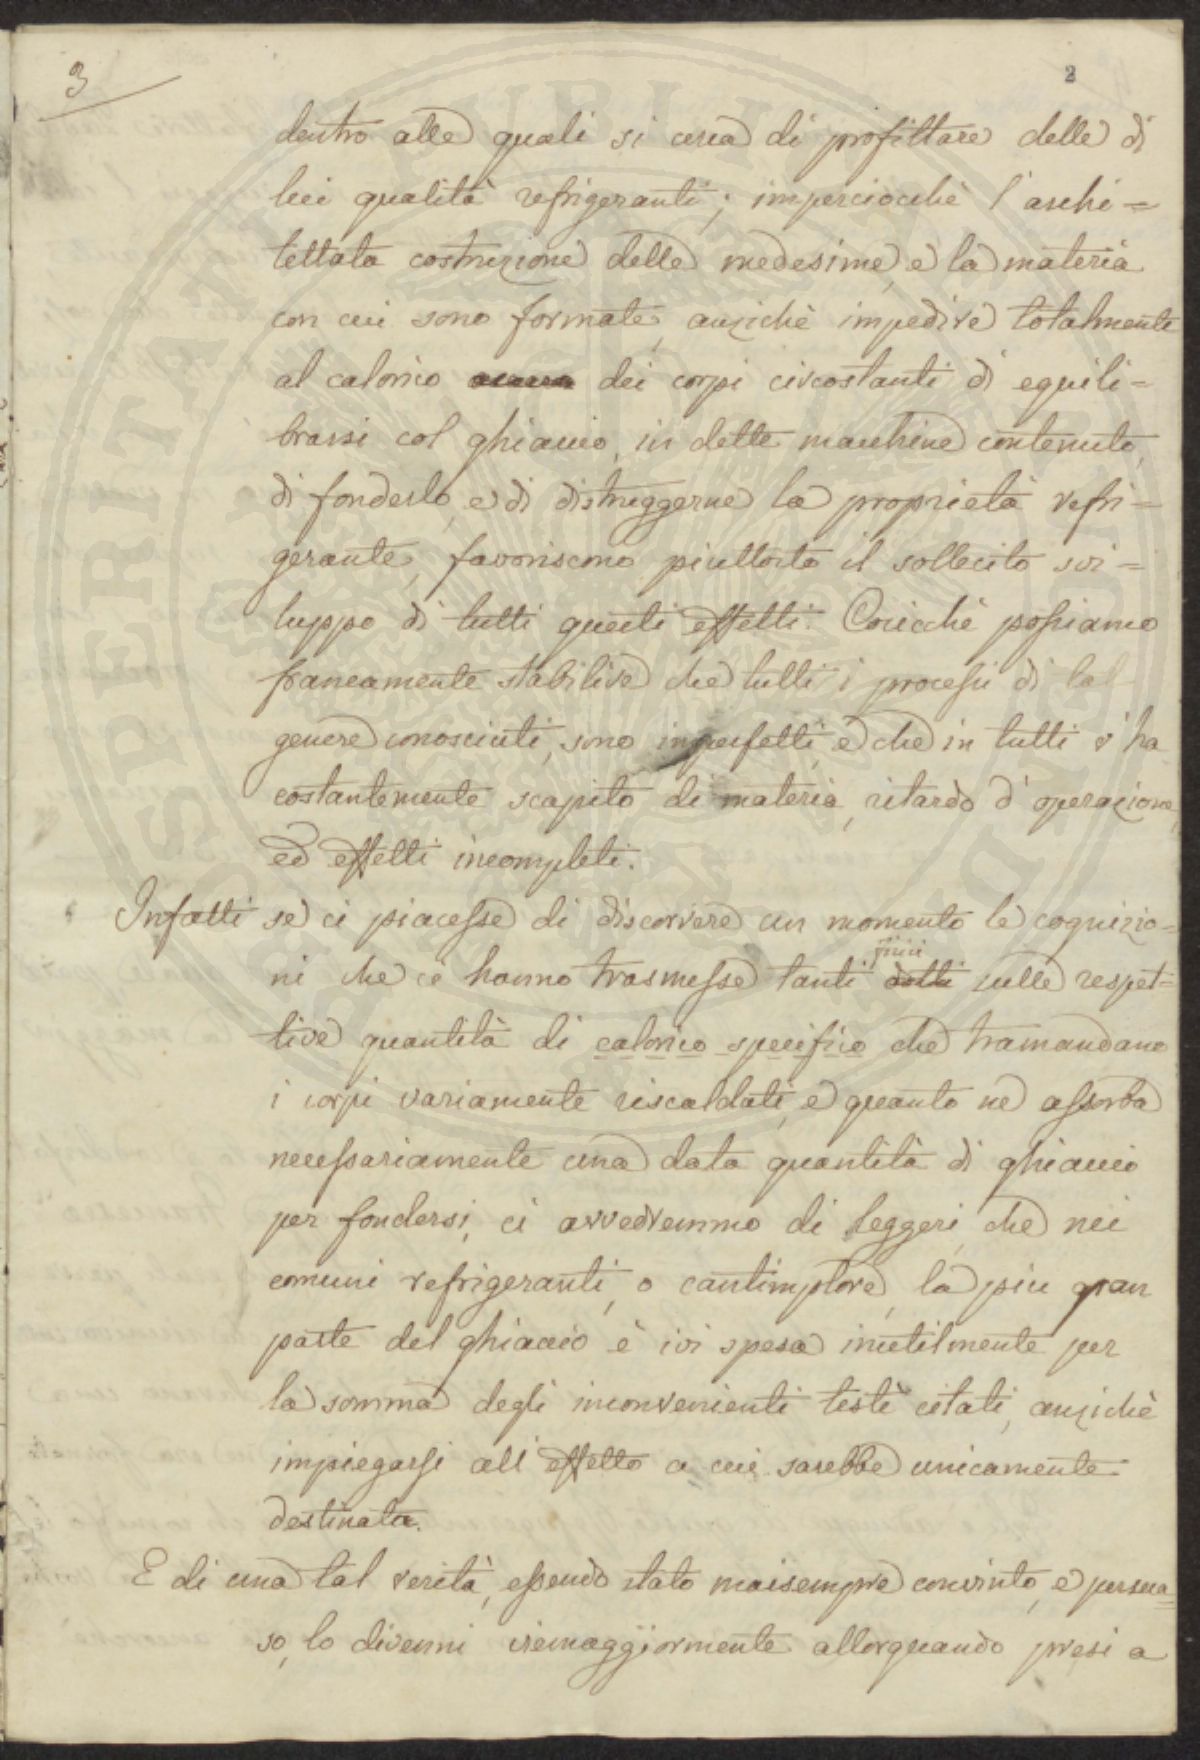 3
2
dentro alle quali si cerca di profittare delle di
lui qualità refrigeranti; imperciocchè l'archi=
tettata costruzione delle medesime, e la materia
con cui sono formate, anzichè impedire totalmente
al calorico dei corpi circostanti di equili=
brarsi col ghiaccio, in dette macchine contenuto,
di fonderlo, e di distruggerne la proprietà refri=
gerante, favoriscono piuttosto il sollecito svi=
luppo di tutti questi effetti. Cosicchè possiamo
francamente stabilire che tutti i processi di tal
genere conosciuti, sono imperfetti, e che in tutti v'ha
costantemente scapito di materia, ritardo d'operazione,
ed effetti incompleti.
Infatti se ci piacesse di discorrere un momento le cognizio=
ni che ci hanno trasmesse tanti dotti fisici sulle respet=
tive quantità di calorico specifico che tramandano
i corpi variamente riscaldati, e quanto ne assorba
necessariamente una data quantità di ghiaccio
per fondersi, ci avvedremmo di leggeri, che nei
comuni refrigeranti, o cantimplore, la piu gran
parte del ghiaccio è ivi spesa inutilmente per
la somma degli inconvenienti testè citati, anzichè
impiegarsi all'effetto a cui sarebbe unicamente
destinata.
E di una tal verità, essendo stato maisempre convinto, e persua=
so, lo divenni viemaggiormente allorquando presi a